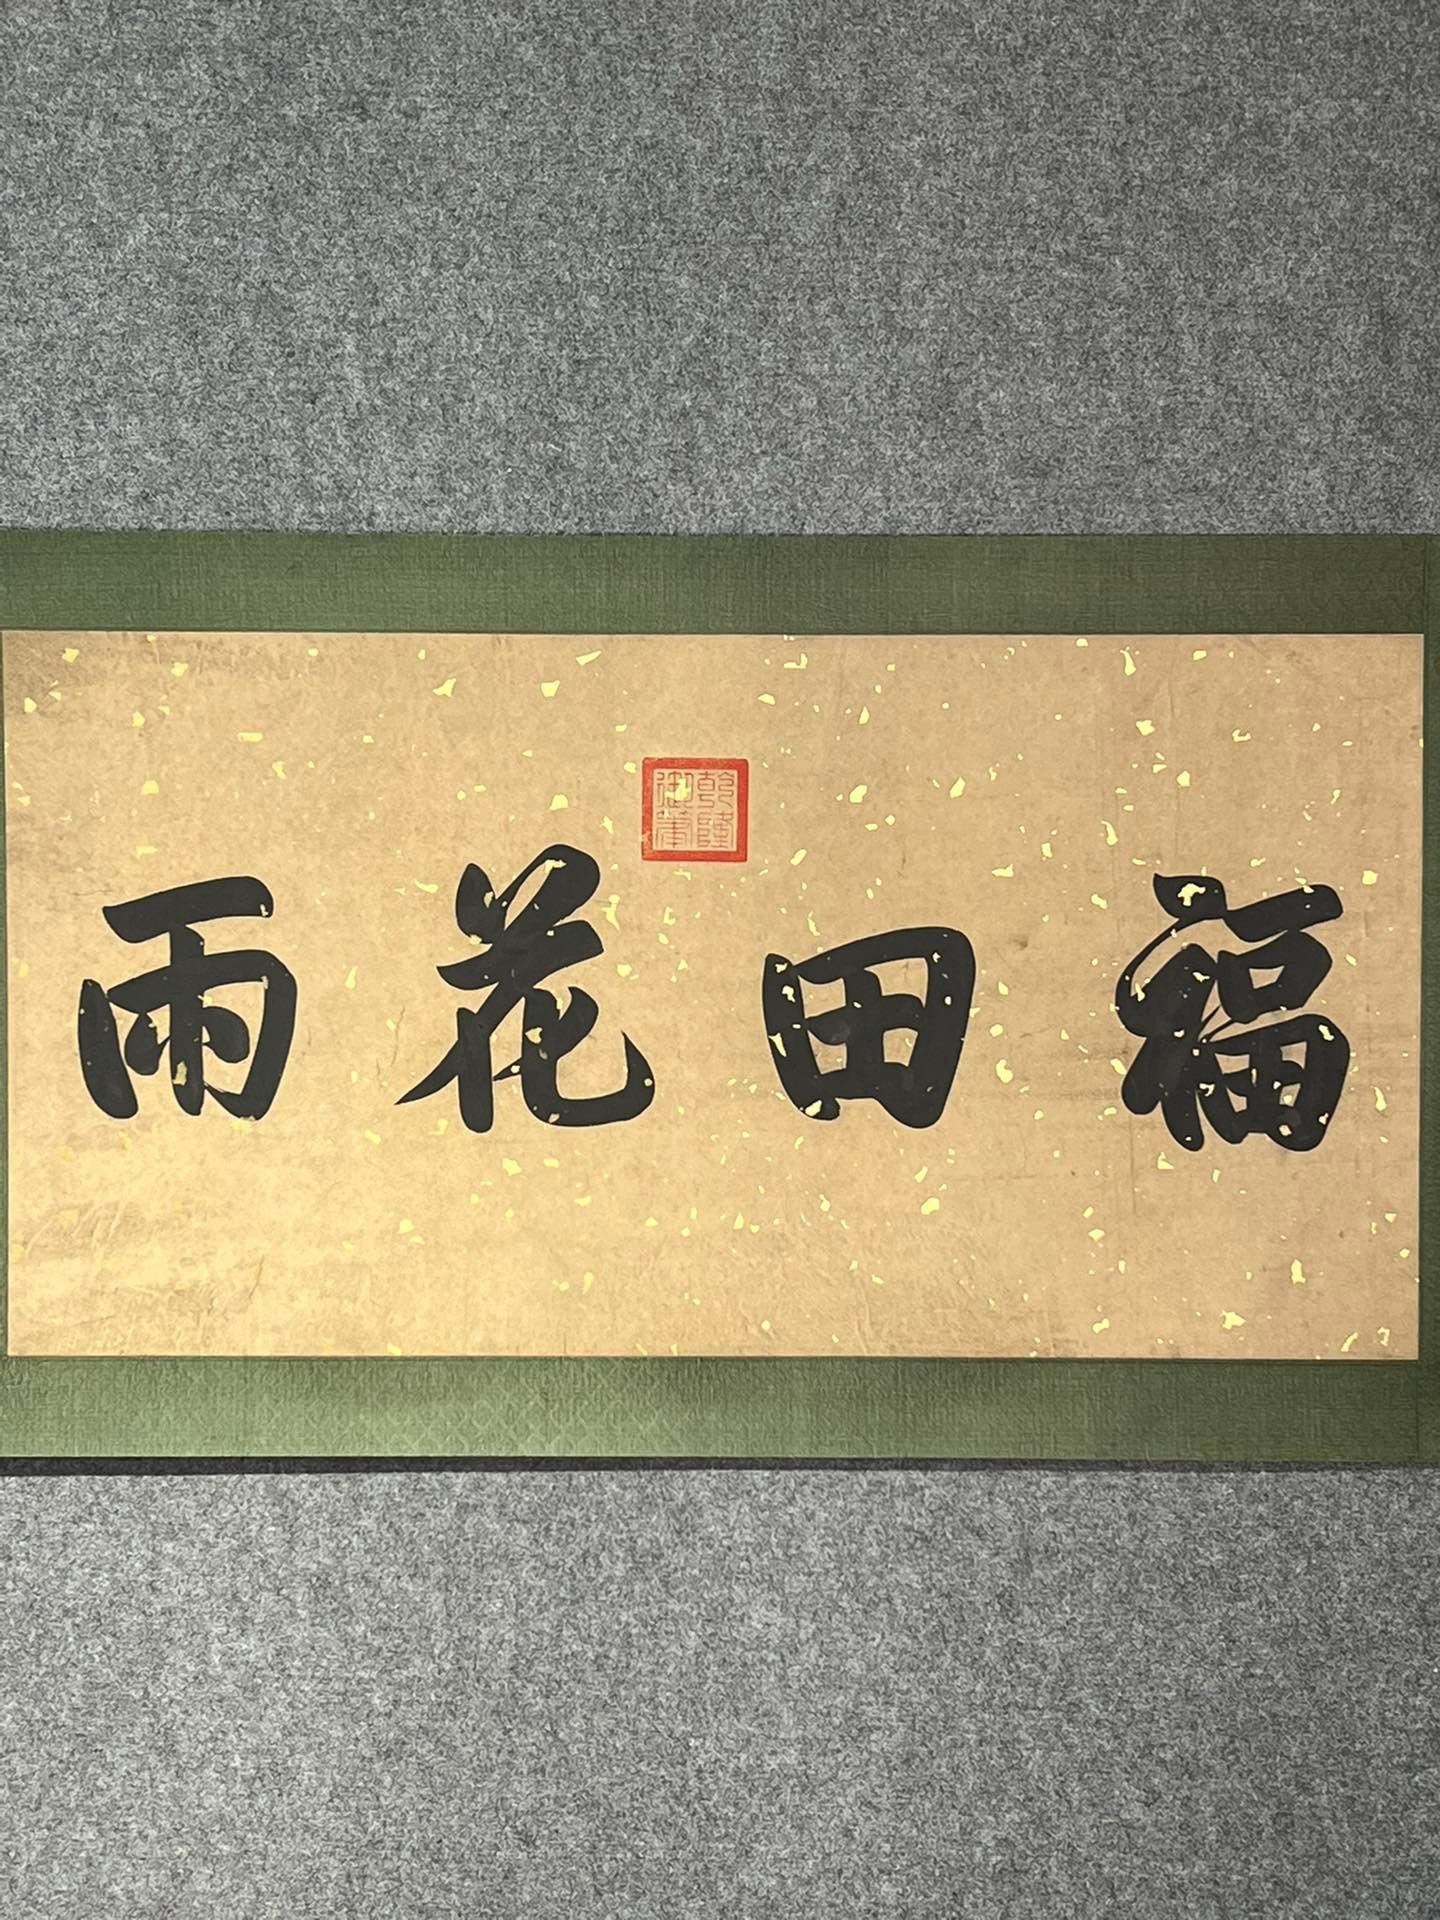 福田花雨
乾隆御筆